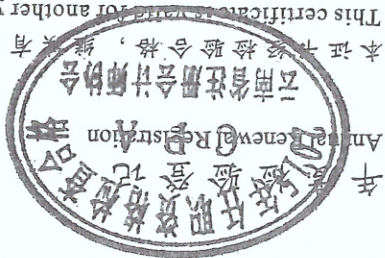 年度检验登记
Annual Renewal Registration
本证书经检验合格，继续有
This certificate is valid for another
任职资格检查合格
CPA
云南省注册会计师协会